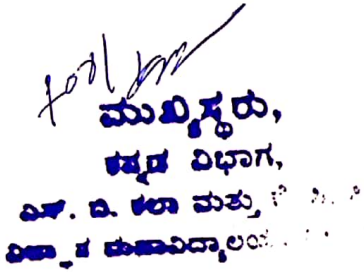 ಮುಖ್ಯಸ್ಥರು,
ಕನ್ನಡ ವಿಭಾಗ,
ಎಸ್. ಬಿ. ಕಲಾ ಮತ್ತು
ವಿಜ್ಞಾನ ಮಹಾವಿದ್ಯಾಲಯ